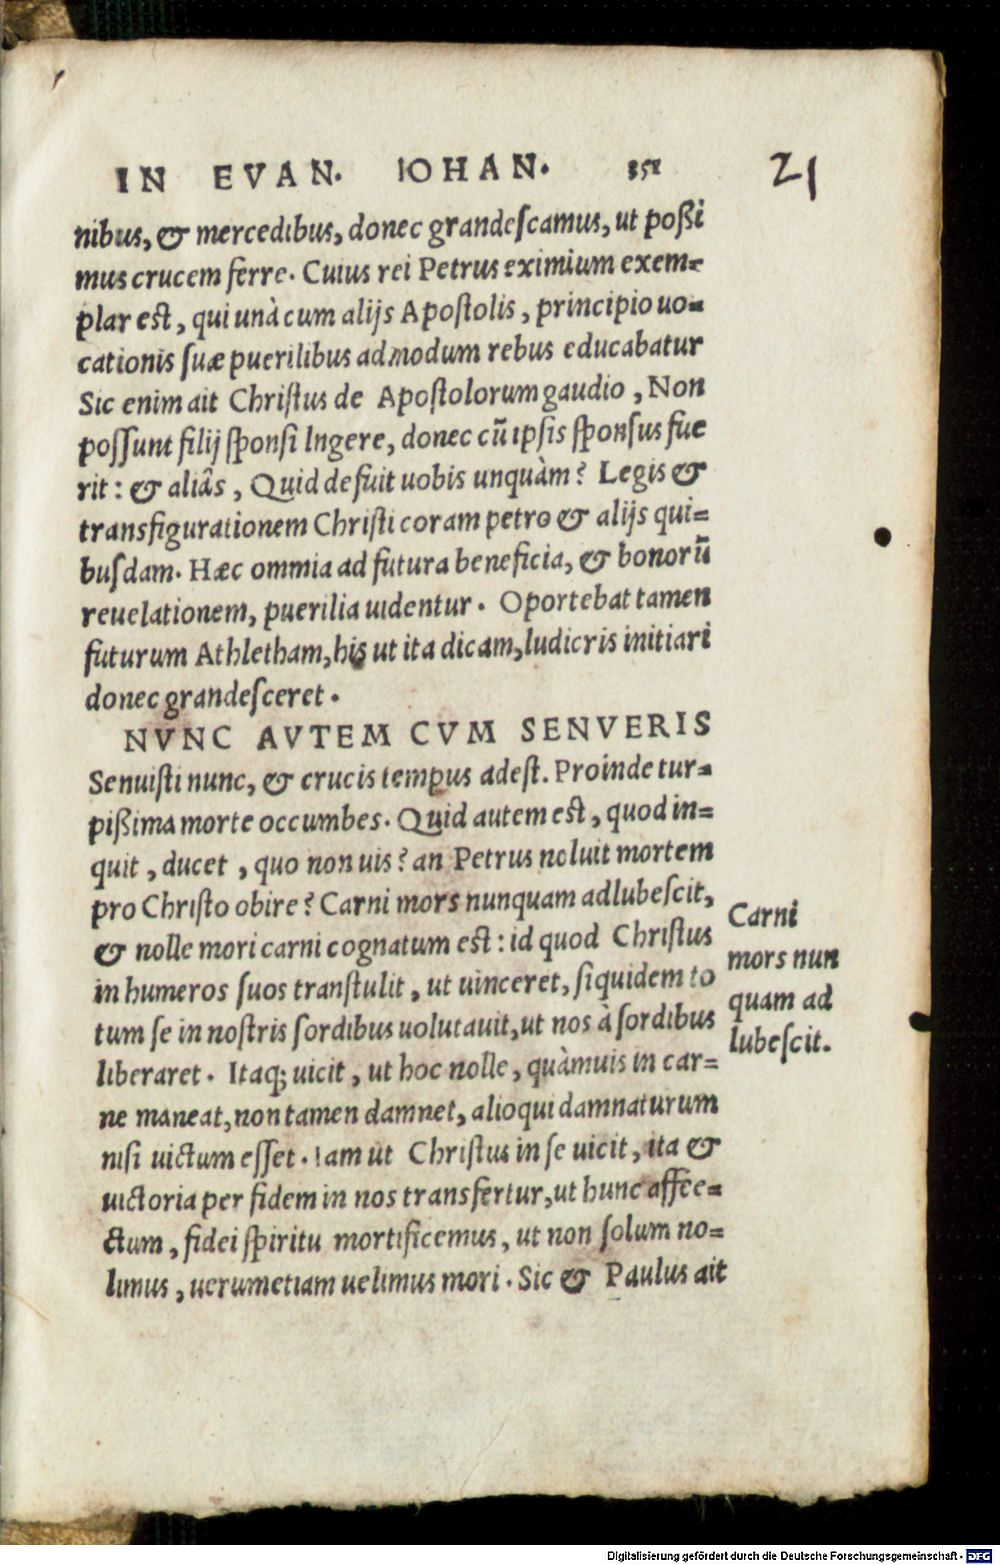 IN EVAN. IOHAN. 351
21
nibus, & mercedibus, donec grandeſcamus, ut poßi
mus crucem ferre. Cuius rei Petrus eximium exem=
plar est, qui unà cum alijs Apoſtolis, principio uo=
cationis ſuæ puerilibus admodum rebus educabatur
Sic enim ait Chriſtus de Apoſtolorum gaudio, Non
poſſunt filij ſponſi lngere, donec cū ipſis ſponſus fue
rit: & aliâs, Quid defuit uobis unquàm? Legis &
transfigurationem Chriſti coram petro & alijs qui=
buſdam. Hæc ommia ad futura beneficia, & bonorū
reuelationem, puerilia uidentur. Oportebat tamen
futurum Athletham, his ut ita dicam, ludicris initiari
donec grandeſceret.
NVNC AVTEM CVM SENVERIS
Senuiſti nunc, & crucis tempus adeſt. Proinde tur=
pißima morte occumbes. Quid autem est, quod in=
quit, ducet, quo non uis? an Petrus noluit mortem
pro Chriſto obire? Carni mors nunquam adlubeſcit,
& nolle mori carni cognatum est: id quod Chriſtus
in humeros ſuos tranſtulit, ut uinceret, ſiquidem to
tum ſe in noſtris ſordibus uolutauit, ut nos à ſordibus
liberaret. Itaq; uicit, ut hoc nolle, quàmuis in car=
ne maneat, non tamen damnet, alioqui damnaturum
niſi uictum eſſet. Iam ut Chriſtus in ſe uicit, ita &
uictoria per fidem in nos transfertur, ut hunc affee=
ctum, fidei ſpiritu mortificemus, ut non ſolum no=
limus, uerumetiam uelimus mori. Sic & Paulus ait
Carni
mors nun
quam ad
lubeſcit.
Digitalisierung gefördert durch die Deutsche Forschungsgemeinschaft - DFG